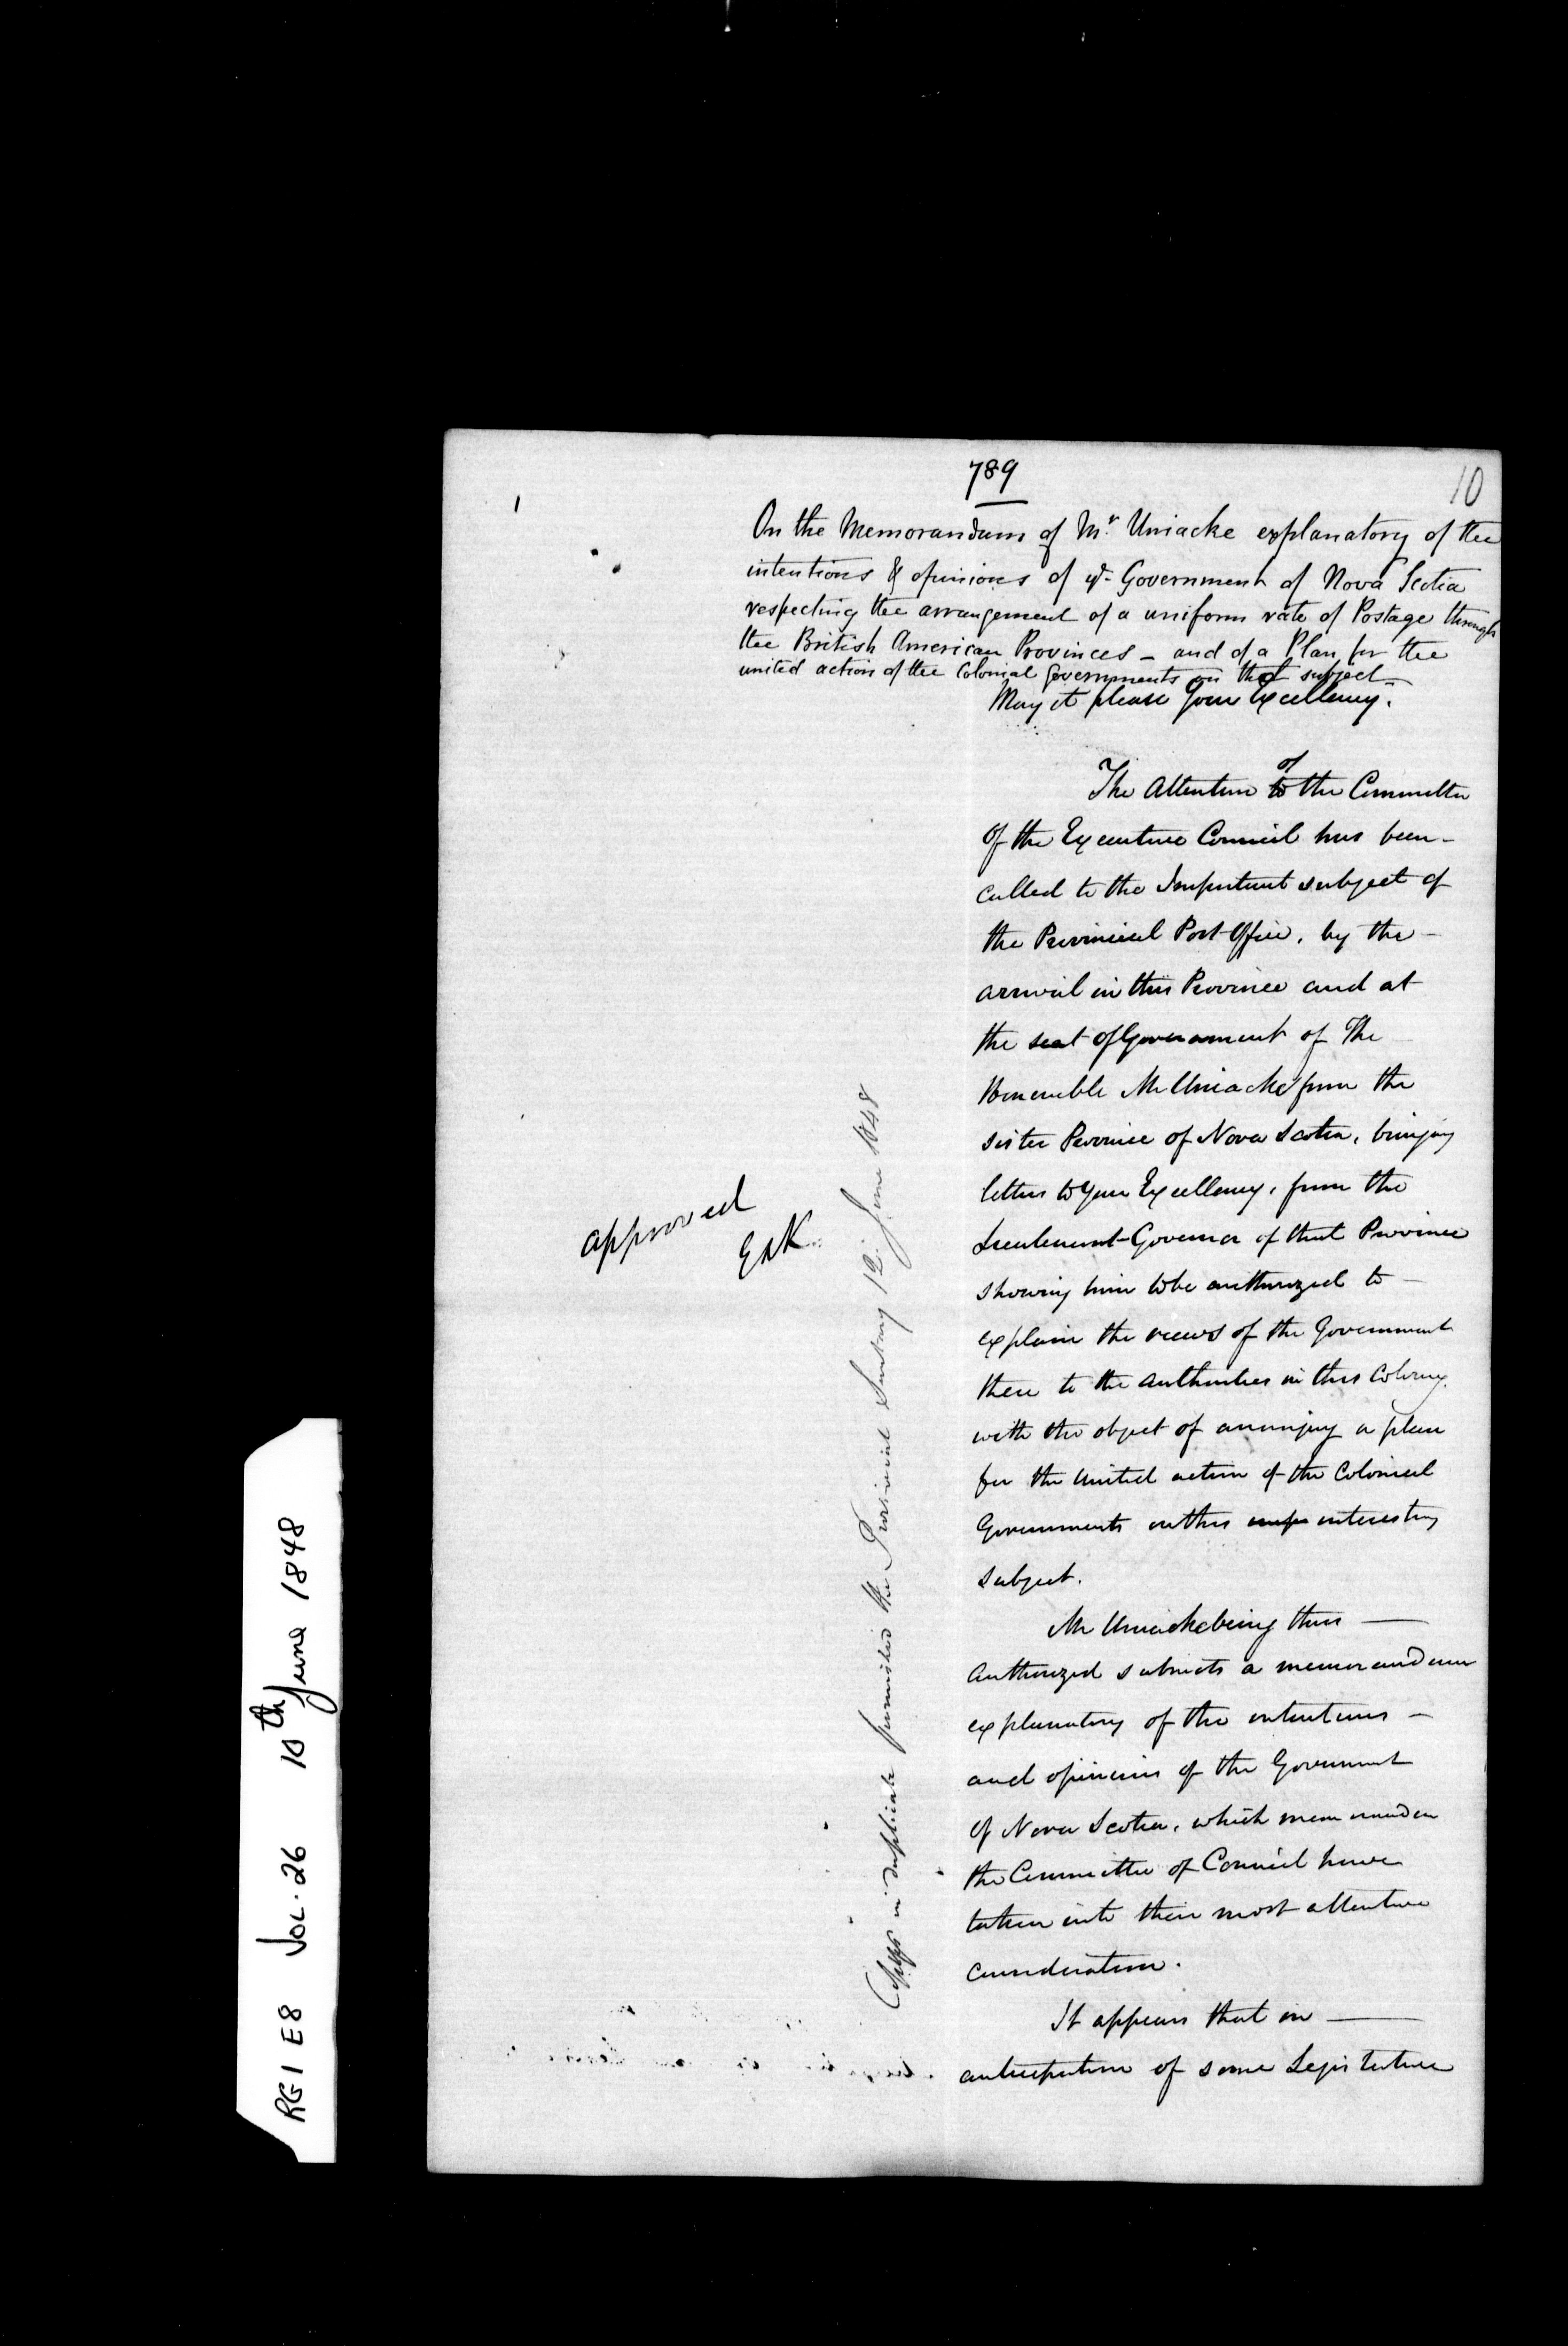 789
10
1
On the Memorandum of Mr. Uniacke explanatory of the
intentions & opinions of ye Government of Nova Scotia
respecting the arrangement of a uniform rate of Postage through
the British American Provinces - and of a Plan for the
united action of the Colonial Governments on that subject -
May it please Your Excellency.
of
The Attention to the Committee
Of the Executive Council has been -
called to the Important subject of
the Provincial Post Office, by the -
arrival in this Province and at
the seat of Government of The
Honorable Mr Uniacke from the
sister Province of Nova Scotia, bringing
letters to Your Excellency, from the
Lieutenant-Governor of that Province
showing him to be authorized to -
explain the views of the Government
there to the authorities in this Colony.
with the object of arranging a plan
for the United action of the Colonial
Governments on this interesting
subject.
Mr Uniacke being thus —
authorized submits a memorandum
explanatory of the intentions -
and opinions of the Government
of Nova Scotia, which memorandum
the Committee of Council have
taken into their most attentive
consideration.
It appears that in —
anticipation of some Legislative
approved
E&K
Copies in duplicate furnished the Provincial Secretary 12. June 1848
RG1 E8 VOL. 26 10th June 1848